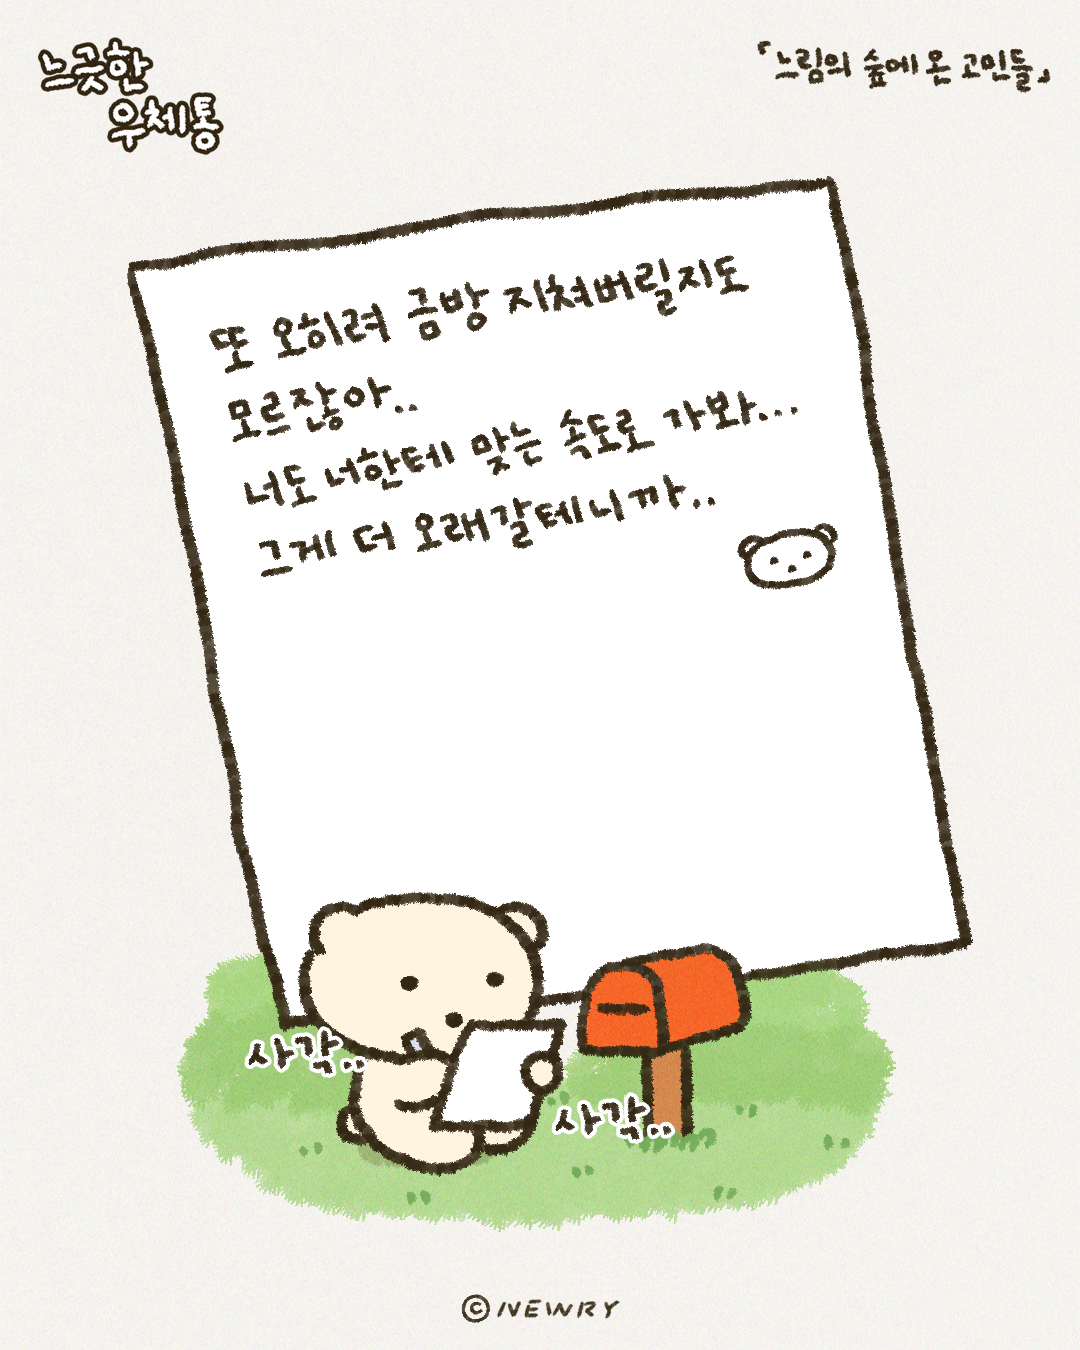 느긋한
우체통
「느림의 숲에 온 고민들」
또 오히려 금방 지쳐버릴지도
모르잖아..
너도 너한테 맞는 속도로 가봐...
그게 더 오래갈테니까..
사각..
사각..
©NEWRY